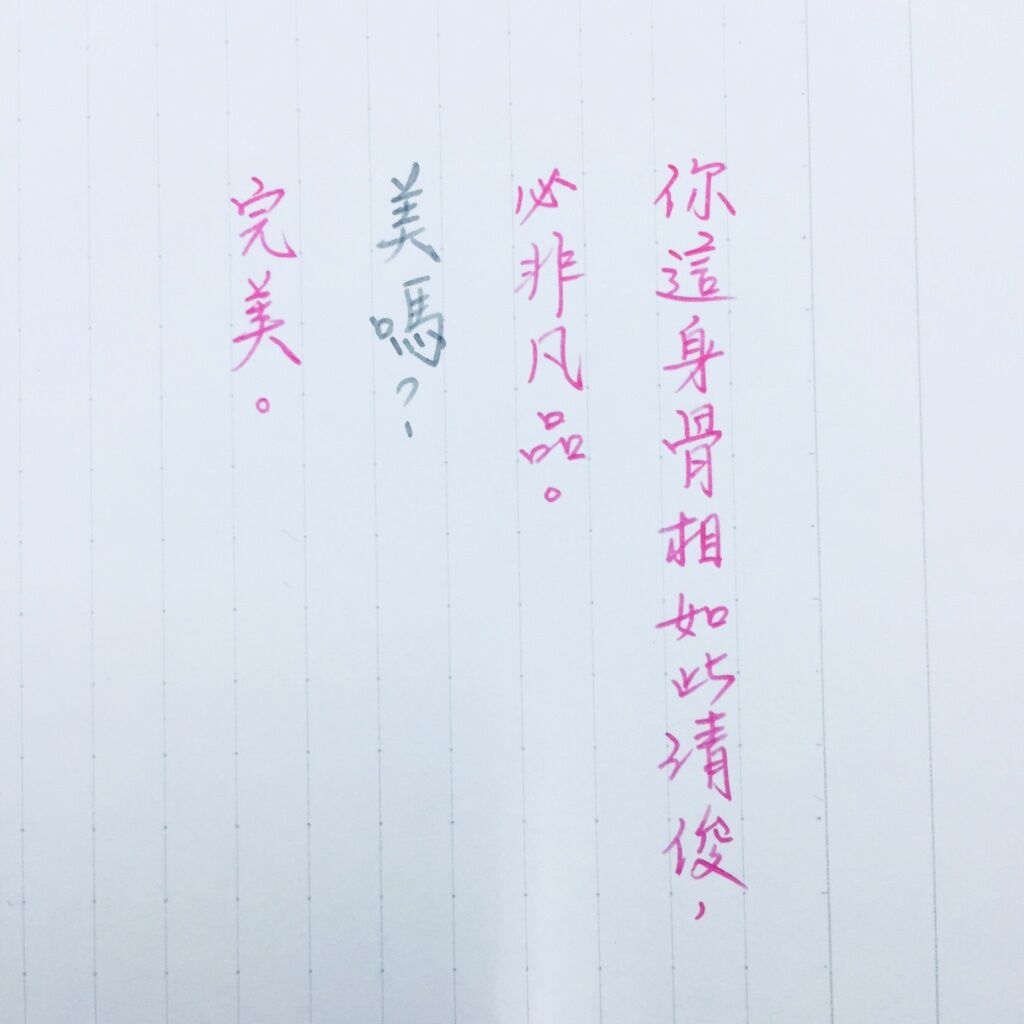 你這身骨相如此清俊，
必非凡品。
美嗎？
完美。